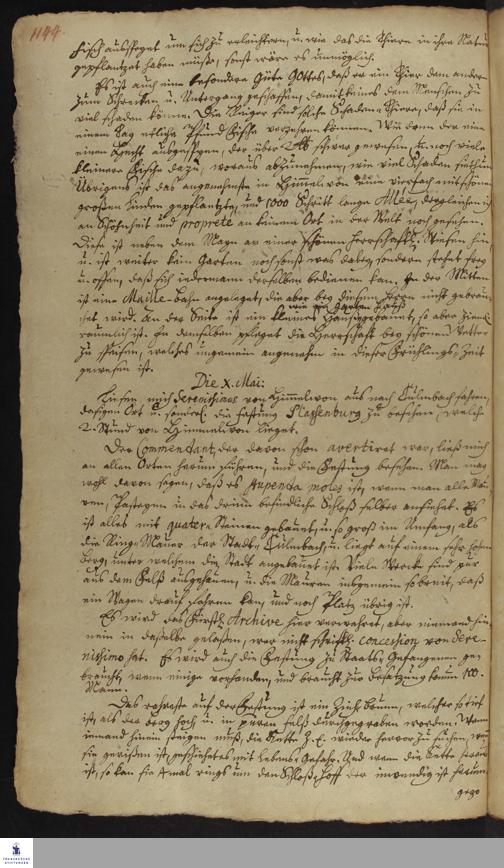 1144.
sich ausschoget um sich zu erleichtern, u. wie das die Thiere in ihre Natur
gepflantzet haben müße, sonst wäre es unmöglich.
Es ist auch eine besondere Güte Gottes, daß er ein Thier dem andern
zum Schrecken u. Untergang geschaffen, damit keines dem Menschen zu
viel schaden könne. Die Reiger sind solche Schaden-Thiere, daß sie in
einem Tag etliche Pfund Fische verzehren können.
einen Hecht der über 2 ℔ schwer gewesen, u. noch viele
kleinere Fische dazu, woraus abzunehmen, wie viel Schaden
Übrigens ist das angenehmste in Himmelcron eine vierfach mit schönen
großen Linden gepflantzte, und 1000 Schritt lange Allée, dergleichen
an Schönheit und propreté an keinem Ort in der Welt noch gesehen.
Diese ist neben dem Mayn an einer schönen herrschaftl. Wiesen hin
u. ist weiter kein Garten noch sonst was dabey, sondern stehet frey
u. offen, daß sich jedermann derselben bedienen kan. In der Mitten
ist eine Maille-Bahn angeleget, die aber bey diesem Herrn nicht gebrau-
chet wird. An der Seite ist ein kleines Hauß gebauet, so aber ziemlich
räumlich ist. In demselben pfleget die Herrschafft bey schönem Wetter
zu speisen, welches ungemein angenehm in dieser Frühlings-Zeit
gewesen ist.
Die X. Mai:
Ließen mich Serenissimus von Himmelcron aus nach Culmbach fahren,
dasigen Ort u. sonderl. die Festung Plassenburg zu besehen, welche
2. Stund von Himmelcron lieget.
Der Commendant, der davon schon avertiret war, ließ mich
an allen Orten herum führen, und die Festung besehen. Man mag
wohl davon sagen, daß es stupenda moles ist, wann man alle Mau-
ren, Pasteyen u. das drinn befindliche Schloß selber ansiehet. Es
ist alles mit quater Steinen gebauet, u. so groß im Umfang, als
die Ring-Mauer der Stadt Culmbach, u. liegt auf einem sehr hohen
Berg, unter welchem die Stadt angebauet ist. Viele Wercke sind pur
aus dem Felß ausgehauen, u. die Mauren insgemein so breit, daß
ein Wagen drauf fahren kan, und noch Platz übrig ist.
Es wird das Fürstl. Archive hier verwahret, aber niemand hin-
nein in dasselbe gelaßen, wer nicht schriftl. concession von Sere-
nissimo hat. Es wird auch die Festung zu Staats-Gefangenen ge-
braucht, wenn einige vorhanden, und braucht zur besatzung kaum 100.
Mann.
Das rahreste auf der Festung ist ein Zieh-Brunn, welcher so tief
ist, als der Berg hoch u. in puren Felß durchgegraben worden. Wann
jemand hinein steigen muß, die Kette z. E. wieder hervor zu suchen, wan
sie gerißen ist, geschiehet es mit Lebens-Gefahr. Und wann die Kette
ist, so kan sie 4 mal rings um den Schloß-Hoff der inwendig ist herum
gezo